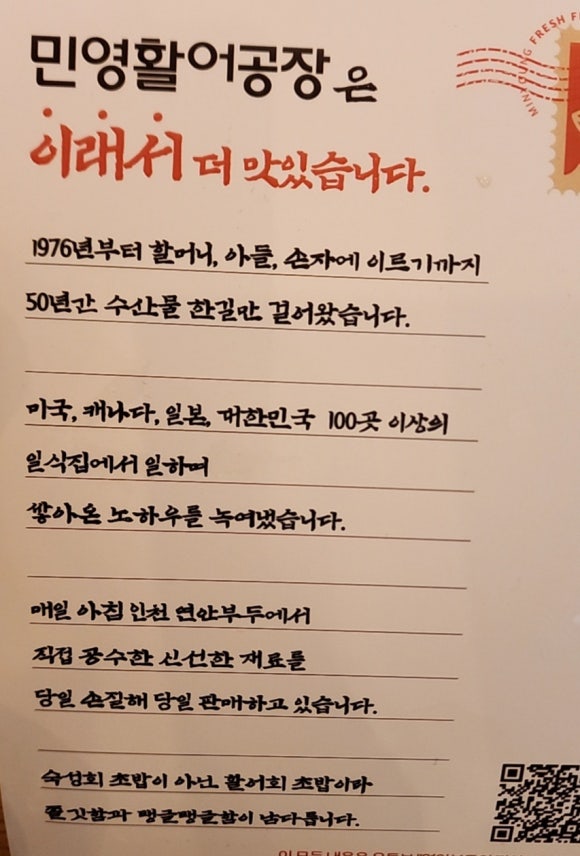 민영활어공장은
MIN YOUNG FRESH F
이래서 더 맛있습니다.
1976년부터 할머니, 아들, 손자에 이르기까지
50년간 수산물 한길만 걸어왔습니다.
미국, 캐나다, 일본, 대한민국 100곳 이상의
일식집에서 일하며
쌓아온 노하우를 녹여냈습니다.
매일 아침 인천 연안부두에서
직접 공수한 신선한 재료를
당일 손질해 당일 판매하고 있습니다.
숙성회 초밥이 아닌 활어회 초밥이라
쫄깃함과 탱글탱글함이 남다릅니다.